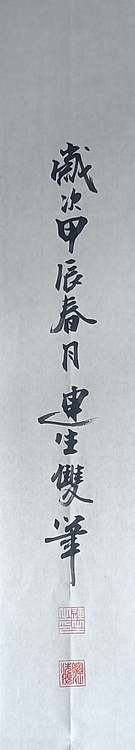 歲次甲辰春月連生雙筆